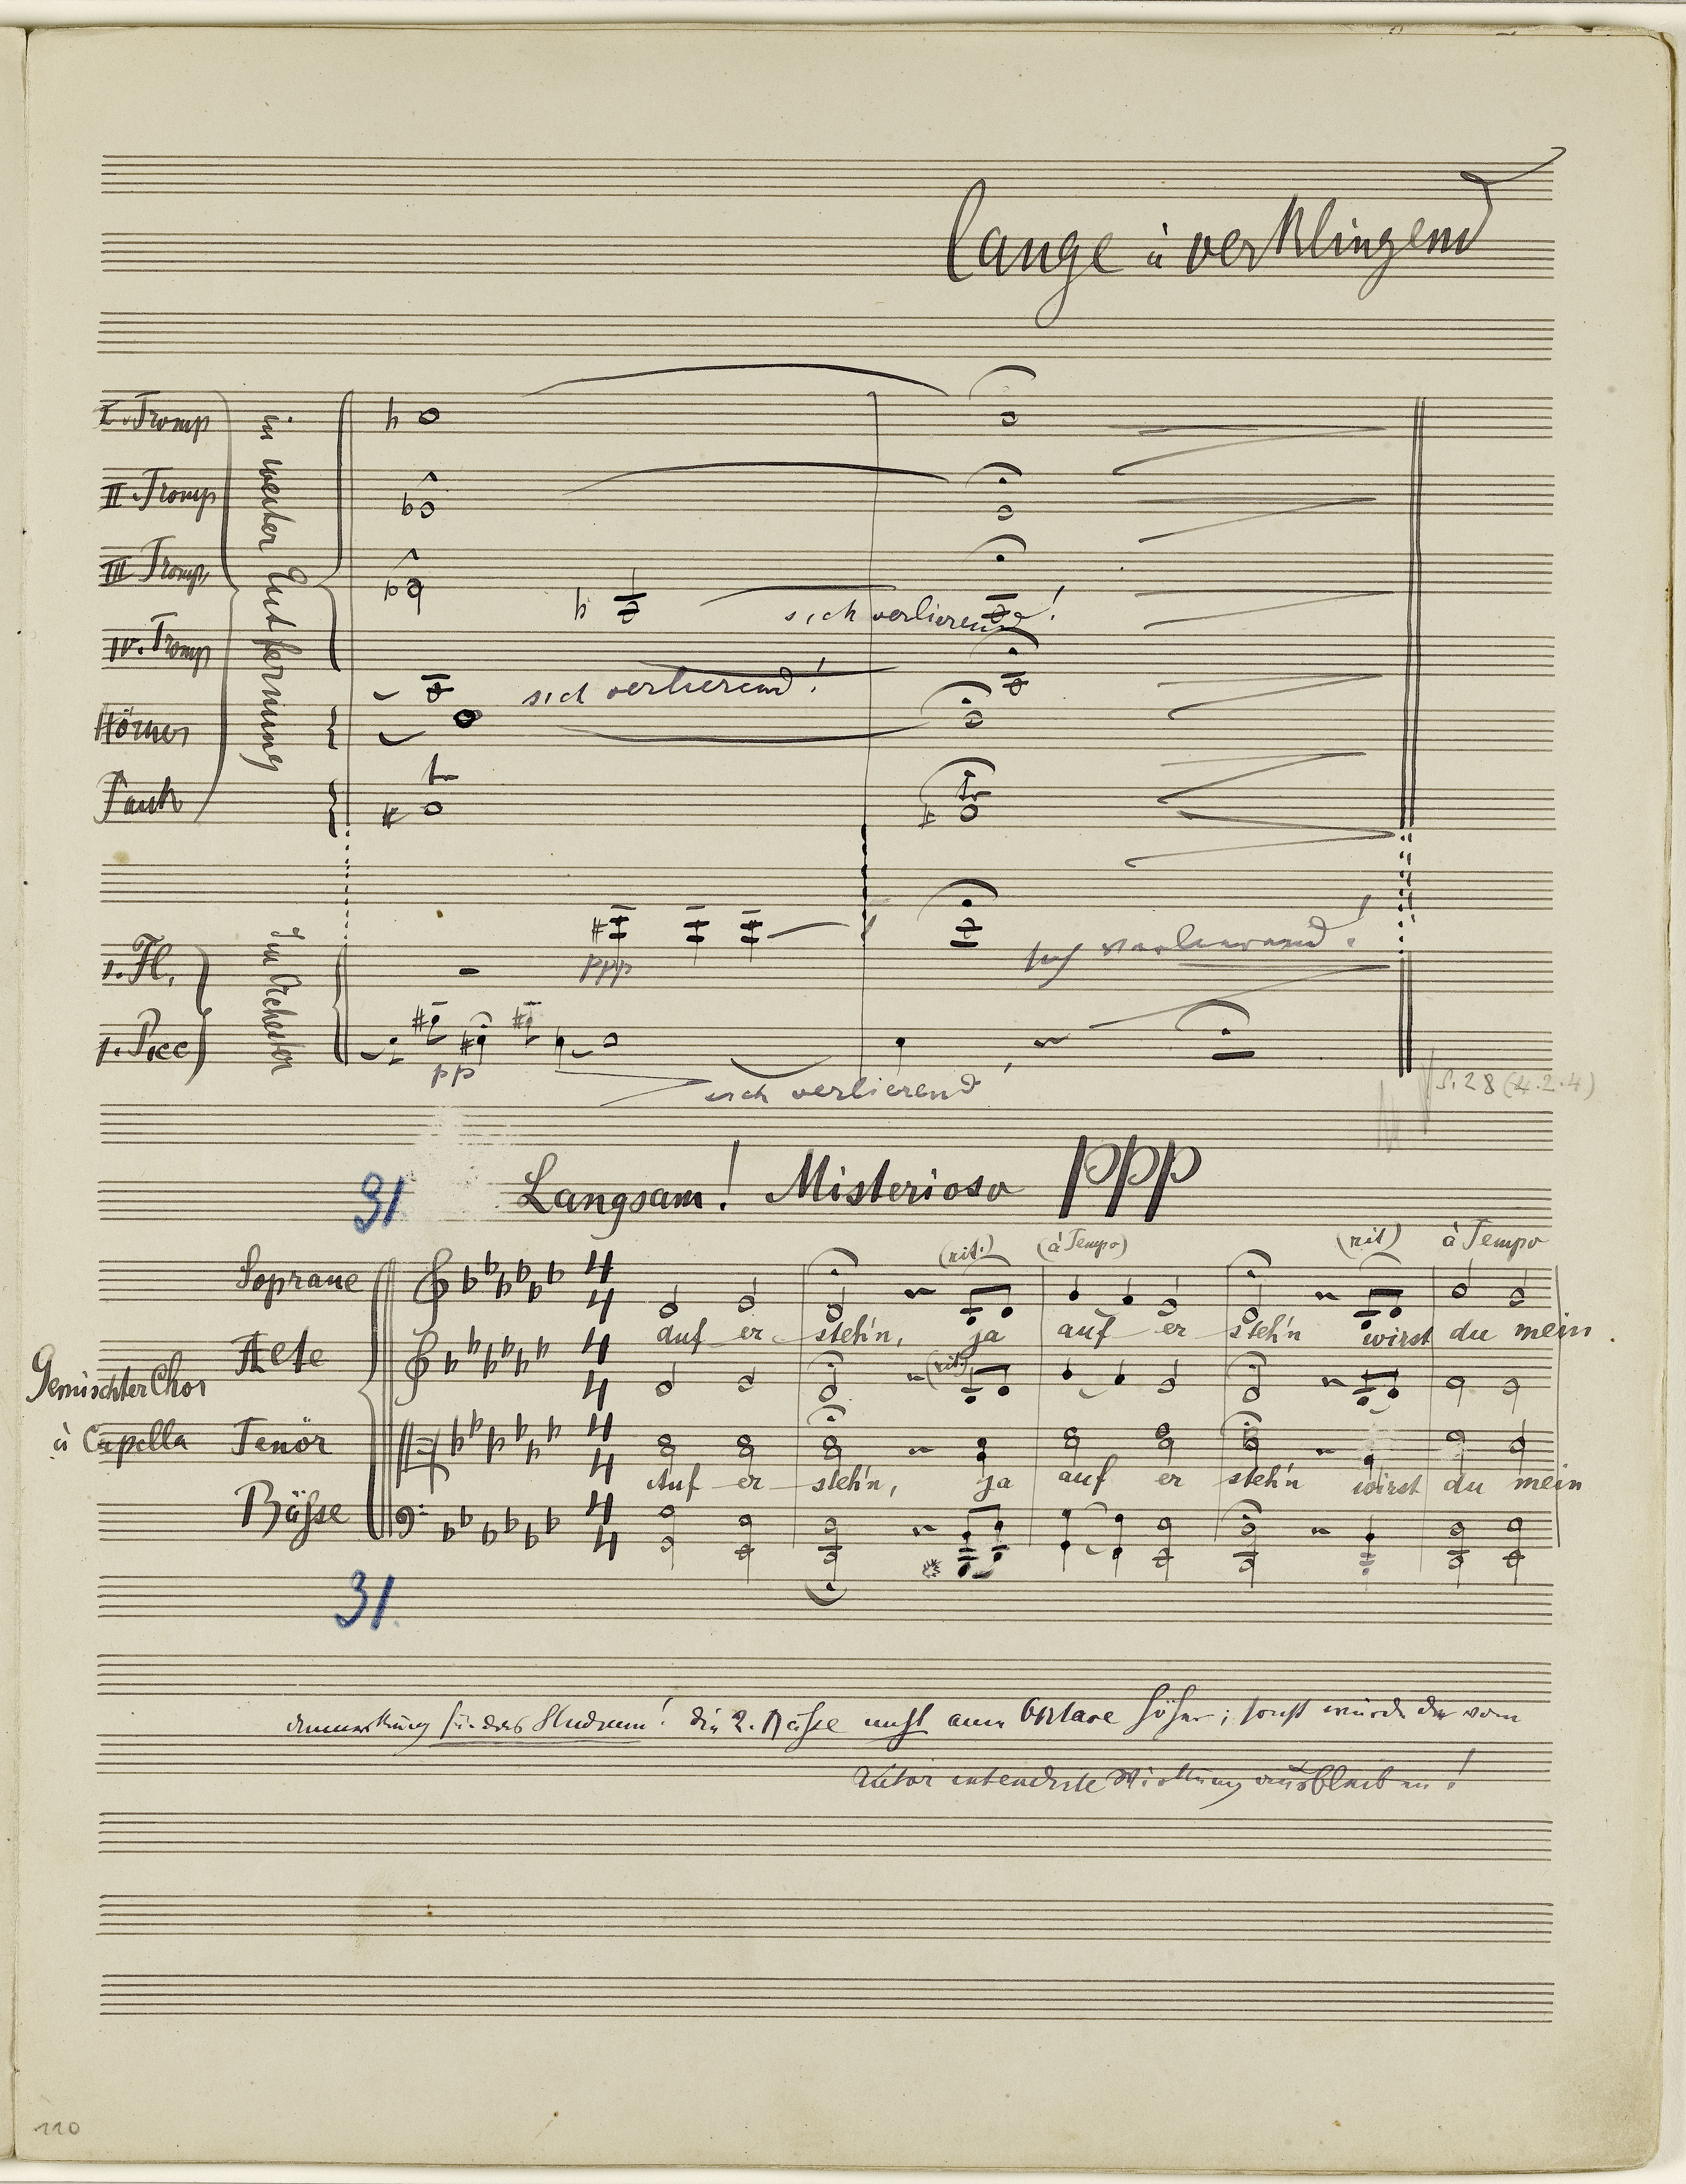 lange ü verklingend
I. Tromp
II. Tromp
III Tromp
IV. Tromp
Hörner
Pauk
in weiter Entfernung
sich verlierend!
sich verlierend!
tr
tr
1. Fl.
1. Picc
Im Orchester
ppp
sich verlierend!
pp
sich verlierend!
S. 28 (4.2.4)
31
Langsam! Misterioso ppp
(rit.) (à Tempo) (rit) à Tempo
Soprane
4 4
auf er steh'n, ja auf er steh'n wirst du mein
Alte
4 4
(rit)
Gemischter Chor
à Capella
Tenör
4 4
Auf er steh'n, ja auf er steh'n wirst du mein
Bäße
4 4
31.
Anmerkung für das Studium! die 2. Bäße nicht eine Octave höher; sonst würde die vom
Autor intendirte Wirkung ausbleiben!
110